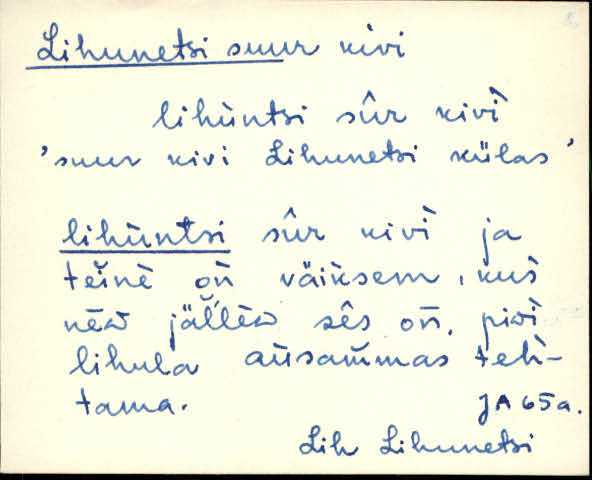 Lihunetsi suur kivi
lihùntsi sûr kivì
'suur kivi Lihunetsi külas'
lihùntsi sûr kivì ja
teine on̄ väiksem, kus
sês on̄, pidì
lihula aùsam̄mas teh̀-
tama. JA 65a.
Lih Lihunetsi